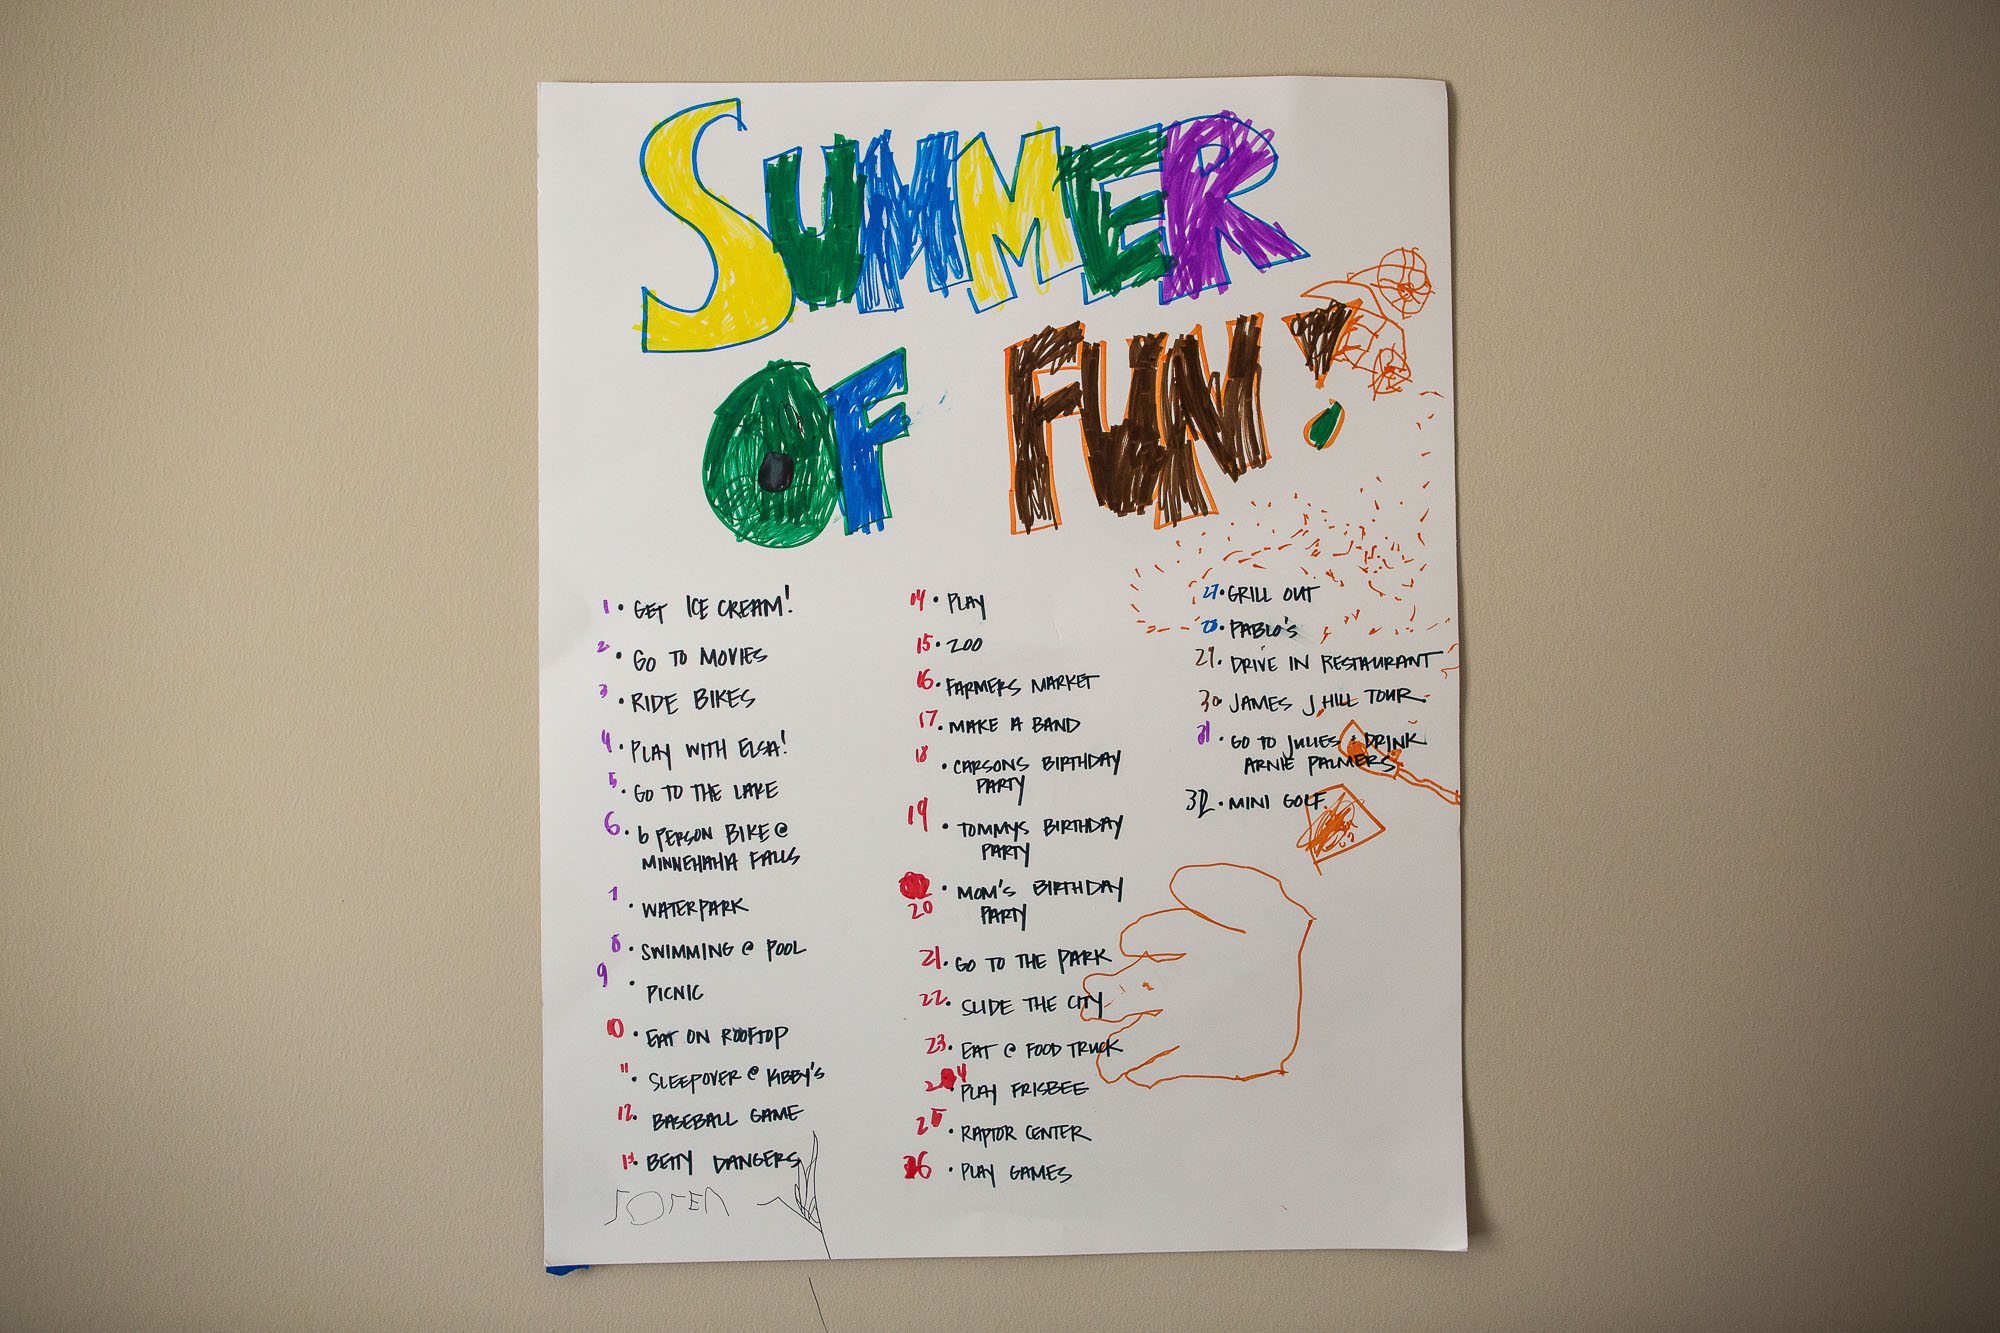 SUMMER
OF FUN!
1 • GET ICE CREAM!
2 • GO TO MOVIES
3 • RIDE BIKES
4 • PLAY WITH ELSA!
5 • GO TO THE LAKE
6 • 6 PERSON BIKE @
MINNEHAHA FALLS
7 • WATERPARK
8 • SWIMMING @ POOL
9 • PICNIC
10 • EAT ON ROOFTOP
11 • SLEEPOVER @ KIBBY'S
12. BASEBALL GAME
13. BETTY DANGERS
SOREN
14 • PLAY
15 • ZOO
16 • FARMERS MARKET
17. MAKE A BAND
18 • CARSONS BIRTHDAY
PARTY
19 • TOMMYS BIRTHDAY
PARTY
20 • MOM'S BIRTHDAY
PARTY
21. GO TO THE PARK
22. SLIDE THE CITY
23. EAT @ FOOD TRUCK
24 • PLAY FRISBEE
25 • RAPTOR CENTER
26 • PLAY GAMES
27 • GRILL OUT
28 • PABLO'S
29. DRIVE IN RESTAURANT
30 • JAMES J HILL TOUR
31 • GO TO JULIES + DRINK
ARNIE PALMERS
32 • MINI GOLF